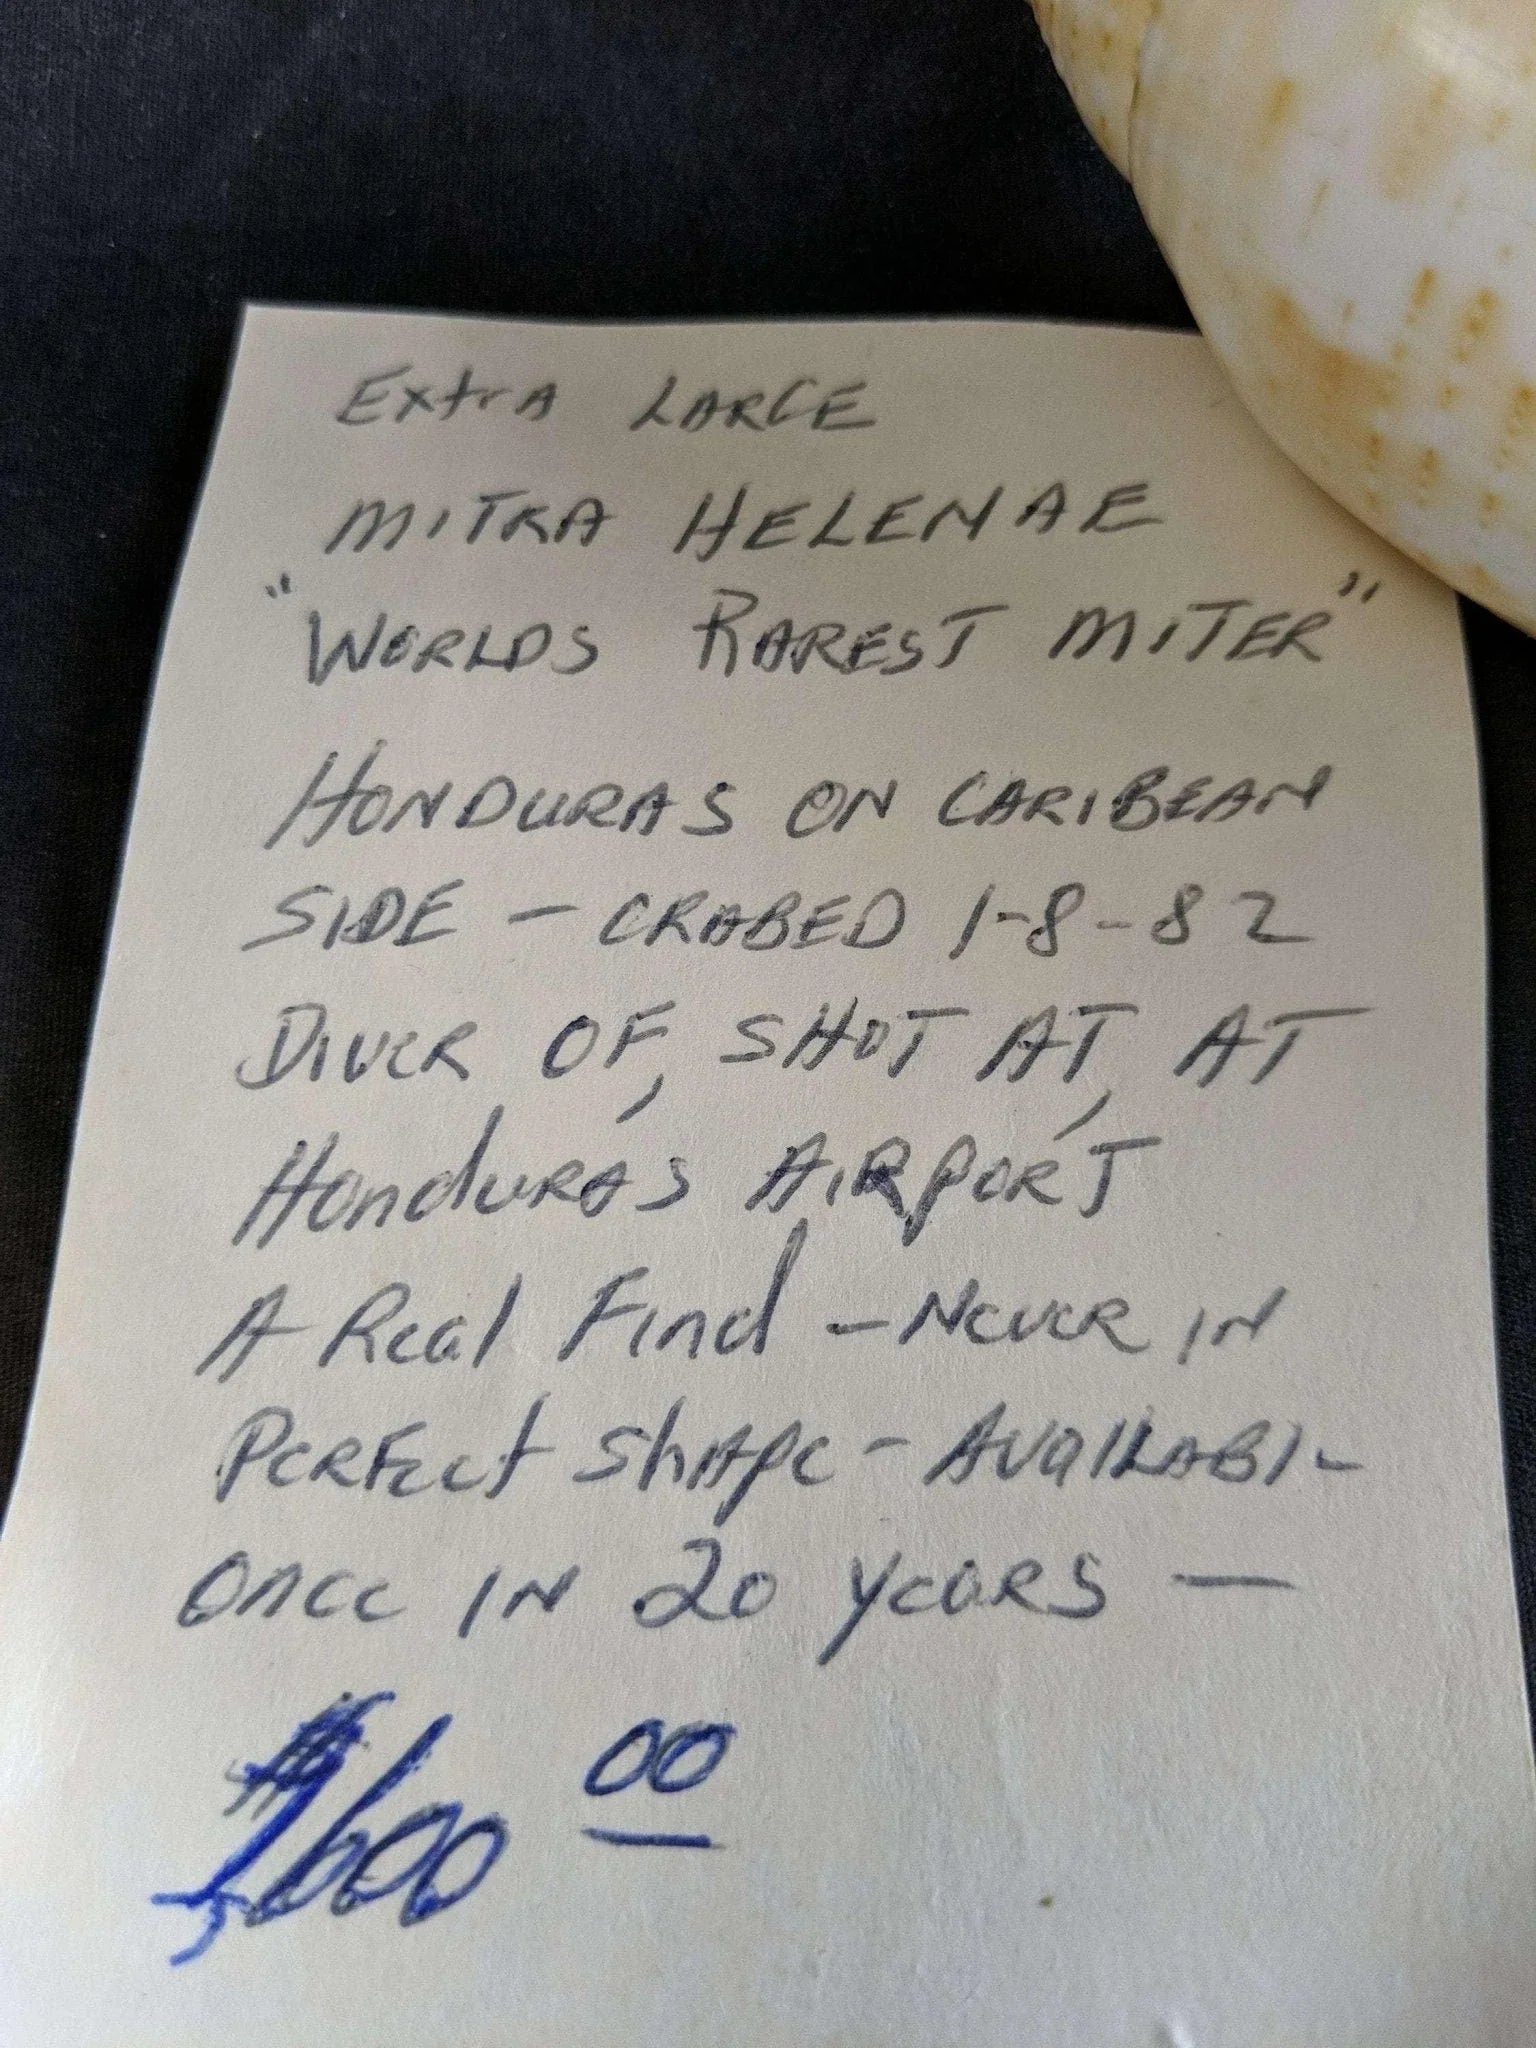 Extra LARGE
MITRA HELENAE
"WORLDS RAREST MITER"
HONDURAS ON CARIBEAN
SIDE - CRABED 1-8-82
DIVER OF, SHOT AT, AT
HONDURAS AIRPORT
A Real Find - NEVER IN
PERFECT SHAPE - AVAILABL
ONCE IN 20 YEARS -
00